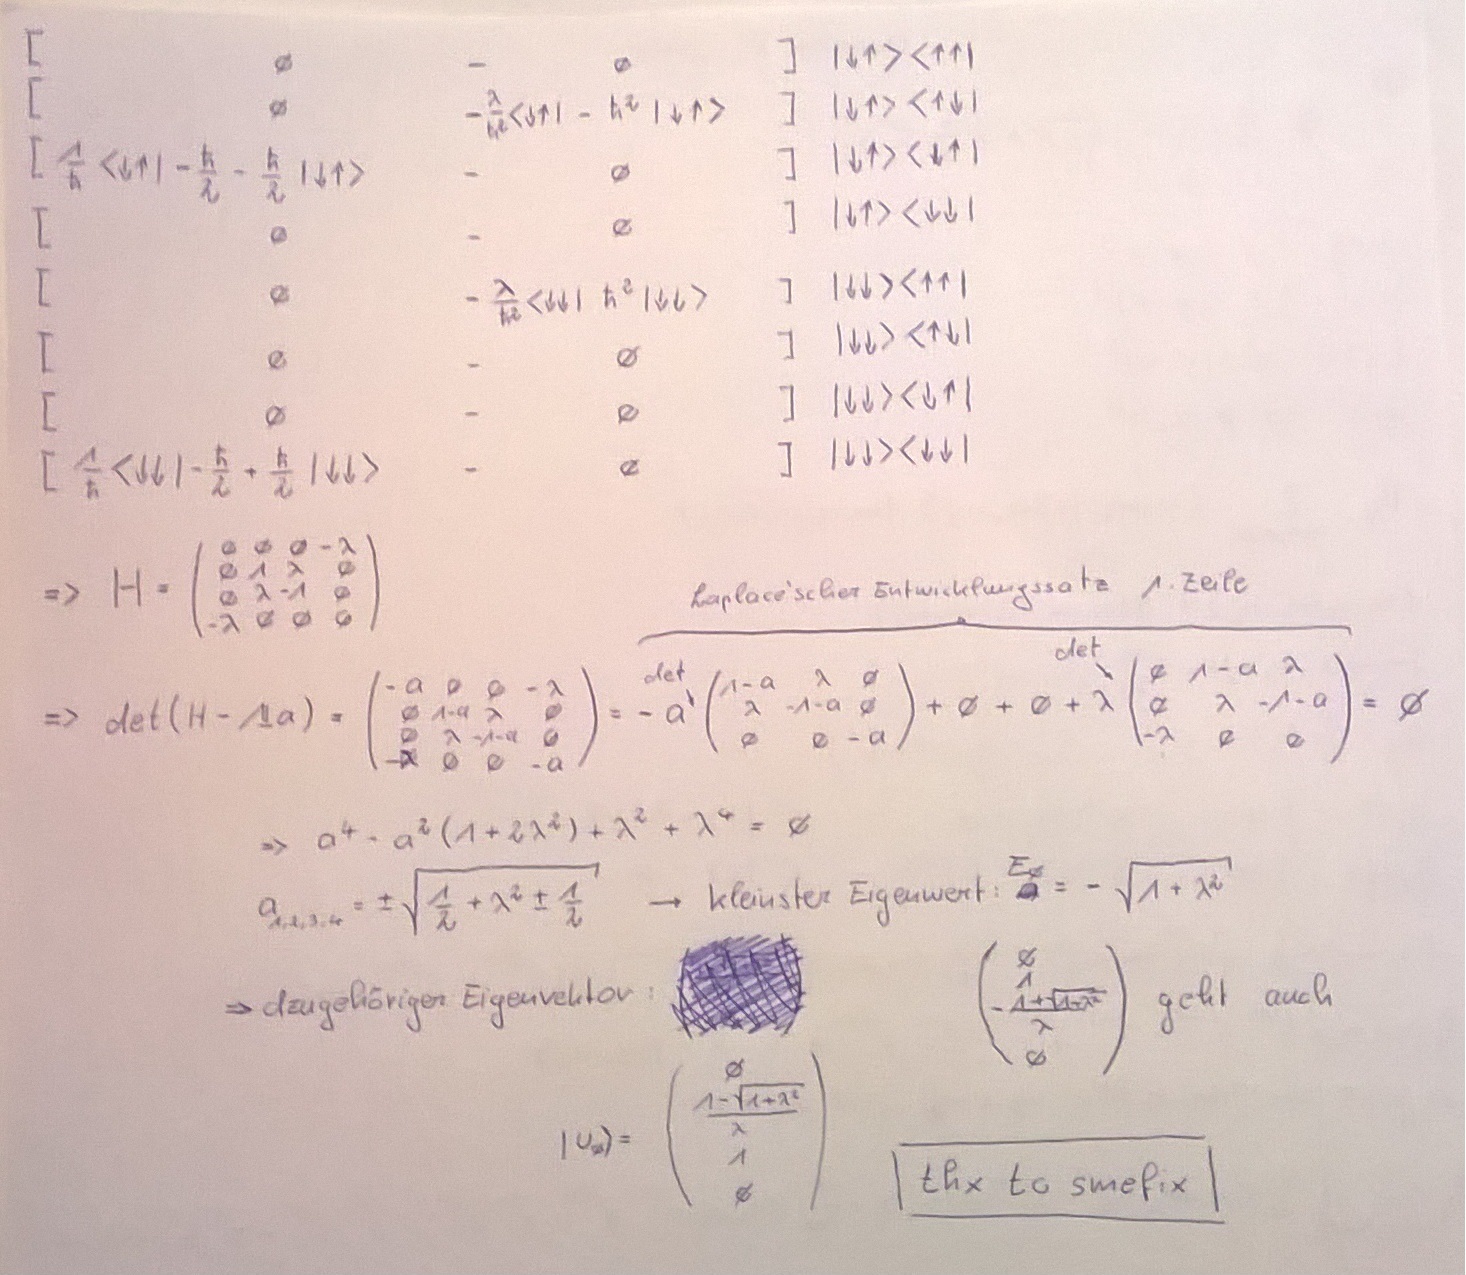 [ ∅ - ∅ ] |↓↑><↑↑|
[ ∅ -λ/ħ²<↓↑| - ħ² |↓↑> ] |↓↑><↑↓|
[ 1/ħ <↓↑| -ħ/2 - ħ/2 |↓↑> - ∅ ] |↓↑><↓↑|
[ ∅ - ∅ ] |↓↑><↓↓|
[ ∅ -λ/ħ²<↓↓| ħ² |↓↓> ] |↓↓><↑↑|
[ ∅ - ∅ ] |↓↓><↑↓|
[ ∅ - ∅ ] |↓↓><↓↑|
[ 1/ħ <↓↓| -ħ/2 + ħ/2 |↓↓> - ∅ ] |↓↓><↓↓|
=> H = (∅ ∅ ∅ -λ; ∅ 1 λ ∅; ∅ λ -1 ∅; -λ ∅ ∅ ∅)
Laplace'scher Entwicklungssatz 1. Zeile
det det
=> det(H - 𝟙a) = (-a ∅ ∅ -λ; ∅ 1-a λ ∅; ∅ λ -1-a ∅; -λ ∅ ∅ -a) = -a (1-a λ ∅; λ -1-a ∅; ∅ ∅ -a) + ∅ + ∅ + λ (∅ 1-a λ; ∅ λ -1-a; -λ ∅ ∅) = ∅
=> a⁴ - a²(1+2λ²) + λ² + λ⁴ = ∅
a₁,₂,₃,₄ = ±√(1/2 + λ² ± 1/2) → kleinster Eigenwert: E∅ = -√(1+λ²)
=> dzugehöriger Eigenvektor: (∅; 1; -(1+√(1+λ²))/λ; ∅) geht auch
|U∅⟩ = (∅; (1-√(1+λ²))/λ; 1; ∅)
thx to smefix